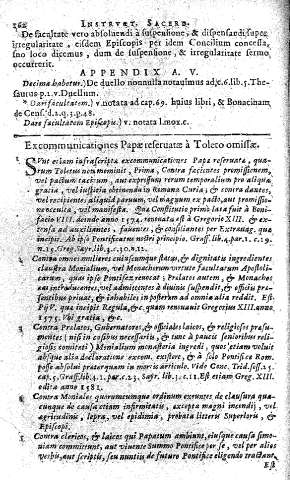 262 INSTRVCT. SACERD.
De facultate vero absoluendi à suspensione, & dispensandi super
irregularitate, eisdem Episcopis per idem Concilium concessa,
suo loco dicemus, dum de suspensione, & irregularitate sermo
occurrerit.
APPENDIX A. V.
Decima habetur.) De duello nonnulla notauimus ad c.6.lib.5. The-
saurus p.1.v. Duellum.
* Dari facultatem.) v. notata ad cap.69. huius libri, & Bonacinam
de Cens. d.2.q.5.p.48.
Dare facultatem Episcopis.) v. notata l. mox. c.
Excommunicationes Papæ reseruatæ à Toleto omissæ.
Sunt etiam infrascripta excommunicationes Papa reseruata, qua-
rum Toletus non meminit, Prima, Contra facientes promissionem,
vel pactum tacitum, aut expressum rerum temporalium pro aliqua
gratia, vel iustitia obtinenda in Romana Curia, & contra dantes,
vel recipientes aliquid paruum, vel magnum ex pacto, aut promissio-
ne occulta, vel manifesta. Qua Constitutio primò lata fuit à Boni-
facio VIII. deinde anno 1574. renouata est à Gregorio XIII. & ex-
tensa ad auxiliantes, fauentes, & consulentes per Extrauag. qua
incipit. Ab ipso Pontificatus nostri principio. Graff. lib.4. par.1. c.19.
n.15. Greg. Sayr. lib.3. c.30. n.12.
Contra omnes mulieres cuiuscumque status, & dignitatis ingredientes
claustra Monialium, vel Monachorum virtute facultatum Apostoli-
carum, quas ipse Pontifex reuocat; Prælatos autem, & Monachos
eas introducentes, vel admittentes à diuinis suspendit, & officiis præ-
sentibus priuat, & inhabiles in posterum ad omnia alia reddit. Est
Pij V. qua incipit Regula, & c. quam renouauit Gregorius XIII. anno
1575. Vbi gratia, & c.
Contra Prælatos, Gubernatores, & officiales laicos, & religiosos præsu-
mentes (nisi in casibus necessariis, & tunc à paucis senioribus reli-
giosis comitati) Monialium monasteria ingredi, quos etiam voluit
absque alia declaratione excom. existere, & à solo Pontifice Rom.
posse absolui præterquam in mortis articulo. Vide Conc. Trid. sess.25.
cap.5. Graff. lib.4.1. par. c.23. Sayr. lib.3. c.11. Est etiam Greg. XIII.
edita anno 1581.
Contra Moniales quorumcumque ordinum exeuntes de clausura qua-
cunque de causa etiam infirmitatis, excepta magni incendij, vel
ægritudinis, lepra, vel epidimia, probata litteris Superioris, &
Episcopi.
Contra clericos, & laicos qui Papatum ambiunt, eiusque causa simo-
niam committunt, aut viuente Summo Pontifice per se, vel per alios
verbis, aut scriptis, seu nuntiis de futuro Pontifice eligendo tractant.
Est